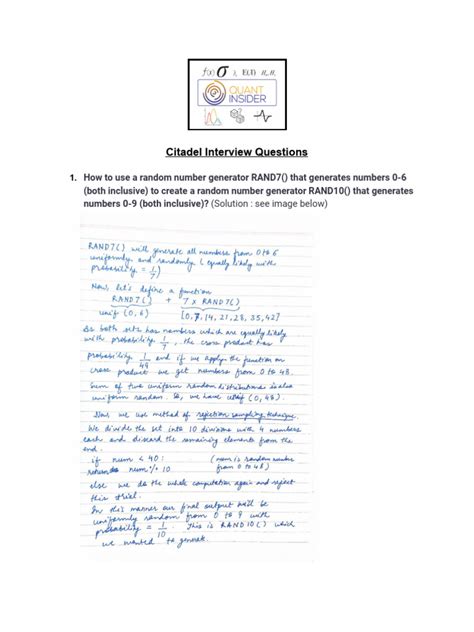 f(x) σ λ, E(X)
QUANT
INSIDER
Citadel Interview Questions
1. How to use a random number generator RAND7() that generates numbers 0-6
(both inclusive) to create a random number generator RAND10() that generates
numbers 0-9 (both inclusive)? (Solution : see image below)
RAND7() will generate all numbers from 0 to 6
uniformly and randomly (equally likely with
probability = 1/7)
Now, let's define a function
RAND7() + 7 x RAND7()
unif (0, 6) [0, 7, 14, 21, 28, 35, 42]
As both sets has numbers which are equally likely
with probability 1/7, the cross product has
probability 1/49 and if we apply the function on
cross product we get numbers from 0 to 48.
Sum of two uniform random distributions is also
uniform random. So, we have unif (0, 48).
Now we use method of rejection sampling technique.
We divide the set into 10 divisions with 4 numbers
each and discard the remaining elements from the
end.
if num < 40 : (num is random number
return num % 10 from 0 to 48)
else we do the whole computation again and reject
this trial.
In this manner our final output will be
uniformly random from 0 to 9 with
probability = 1/10. This is RAND10() which
we wanted to generate.